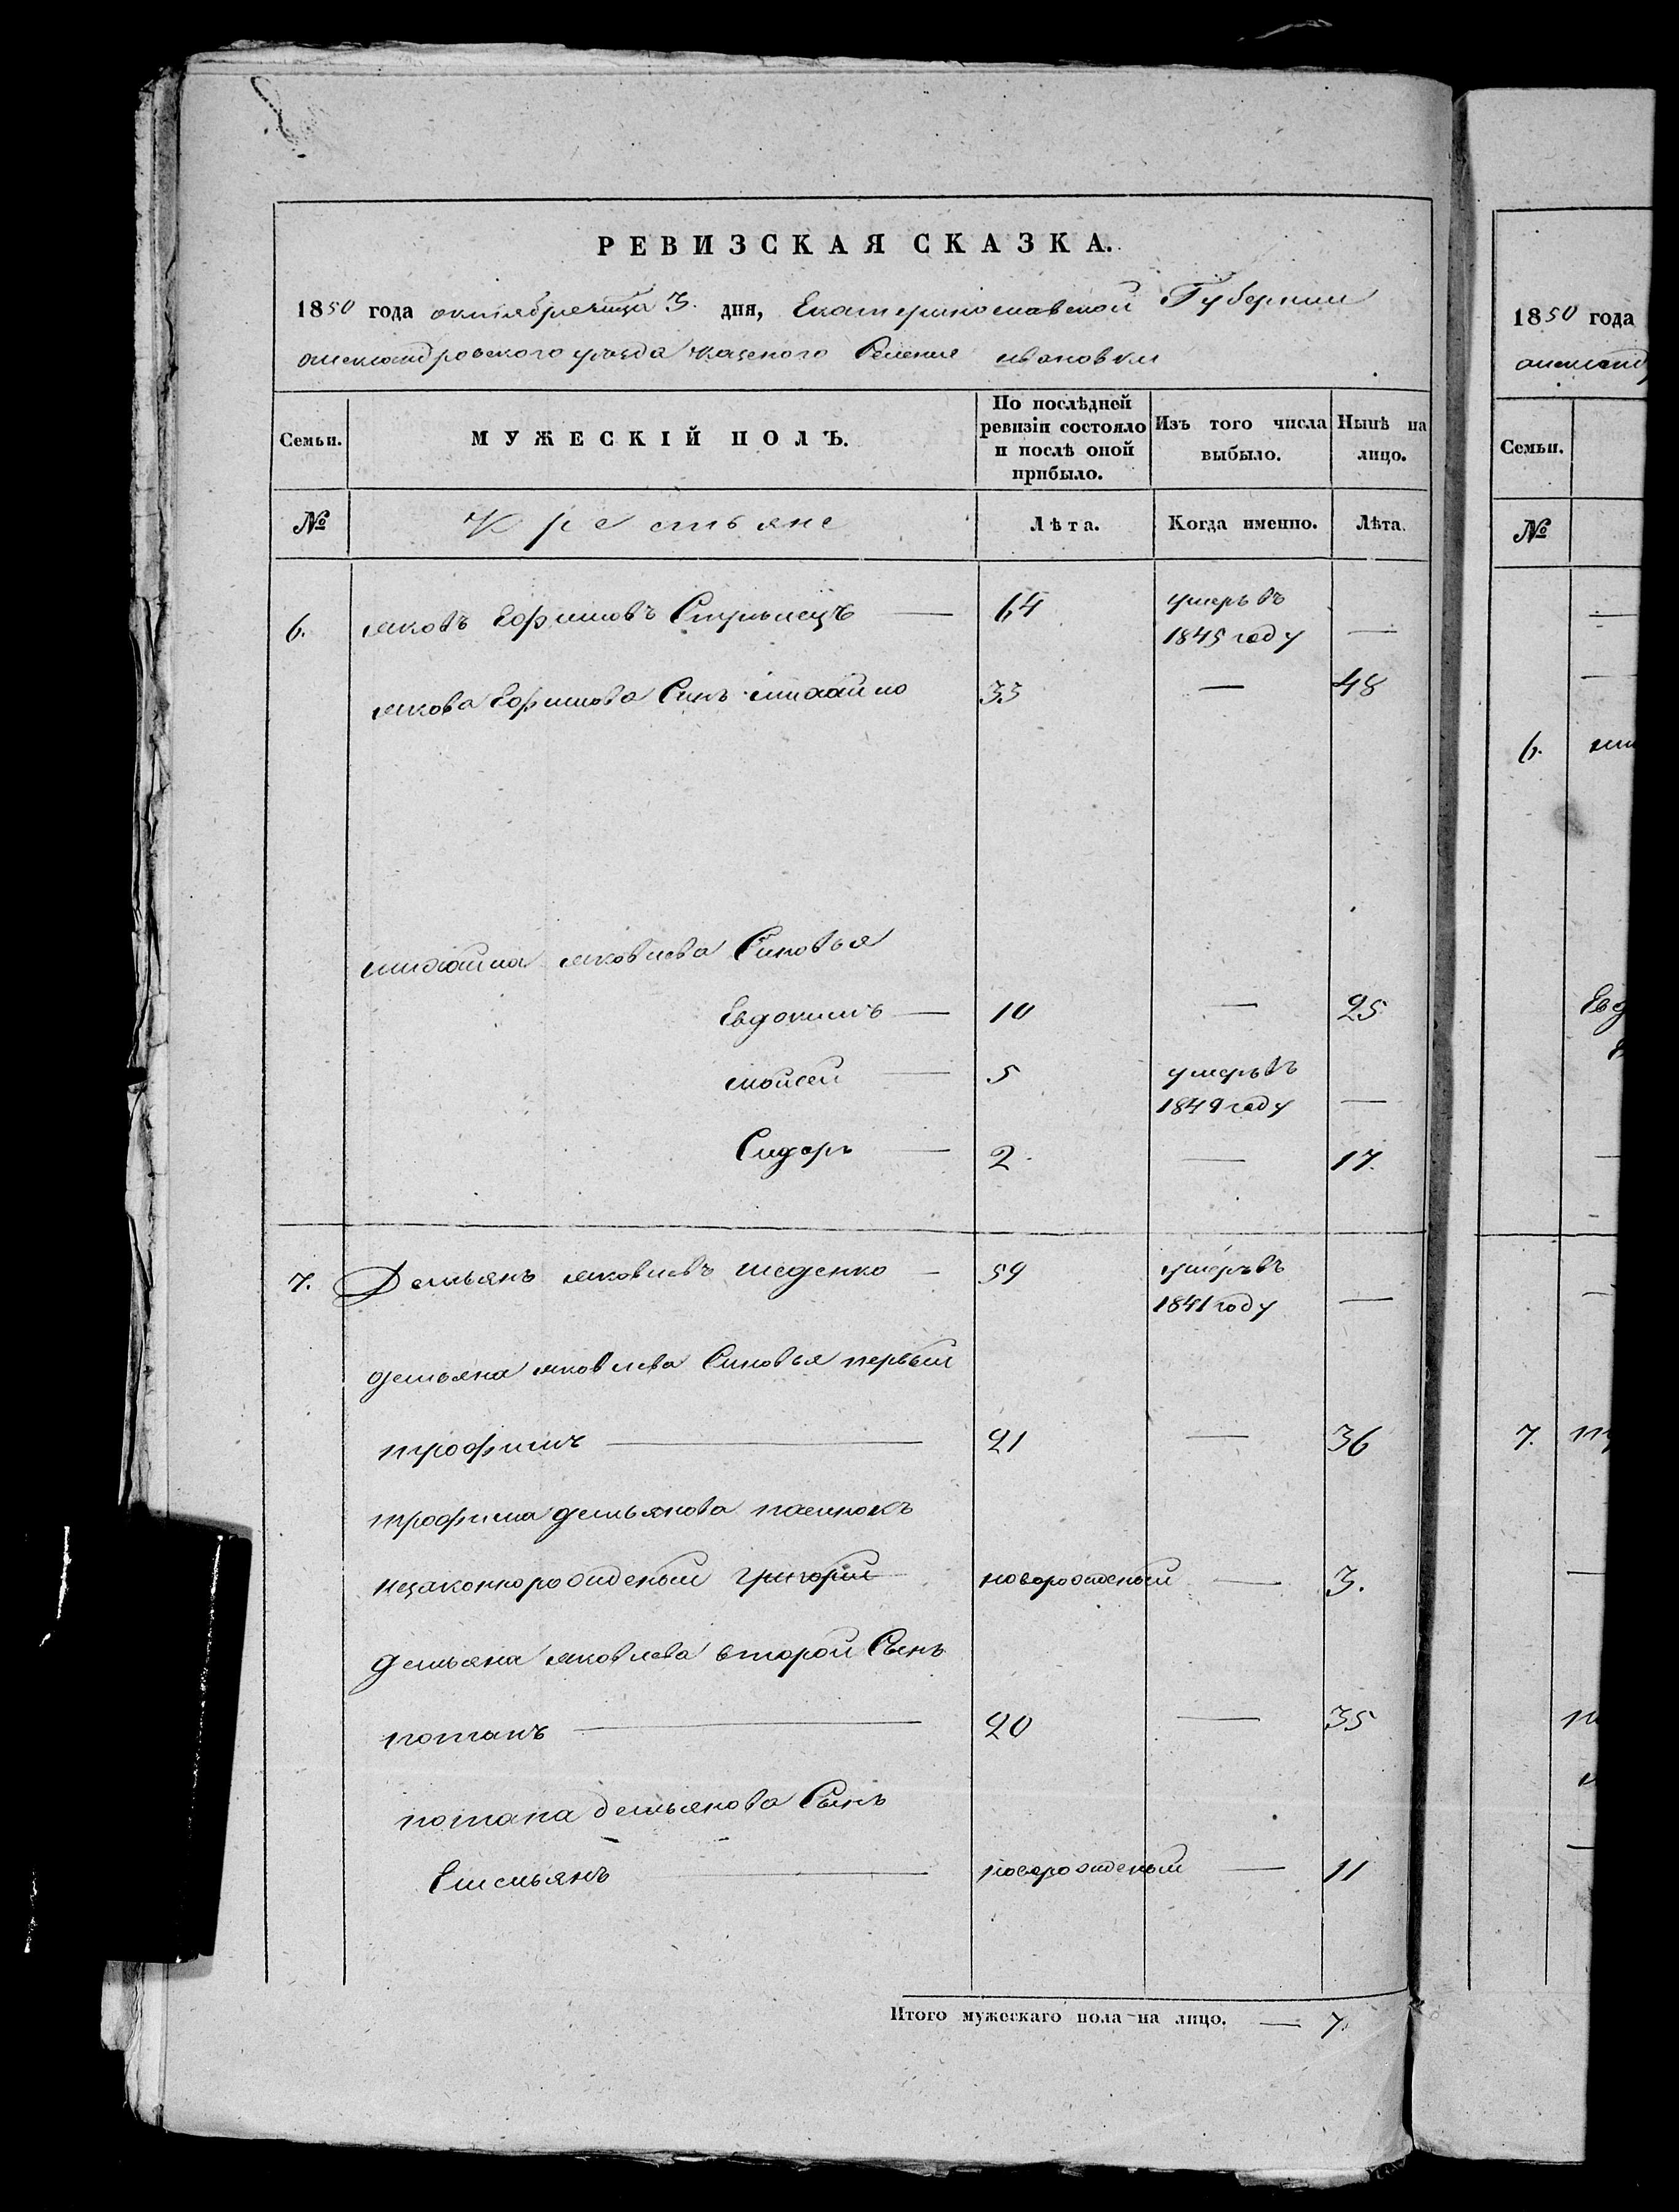 РЕВИЗСКАЯ СКАЗКА.
1850 года октября месяца 3. дня, Екатеринославской Губернии
александровского уезда казеного Селения ивановки
Семьи.
МУЖЕСКІЙ ПОЛЪ.
По послѣдней ревизіи состояло и послѣ оной прибыло.
Изъ того числа выбыло.
Нынѣ на лицо.
№
Крестьяне
Лѣта.
Когда именно.
Лѣта.
6. яковъ Ефимовъ — 64 умеръ въ 1845 году —
якова Ефимова Синъ михайло 33 — 48
михайла яковлева Синовья
Евдокимъ — 10 — 25
мойсей — 5 умеръ въ 1849 году —
Сидоръ — 2. — 17.
7. Демьянъ яковлевъ — 59 умеръ въ 1841 году —
демьяна яковлева Синовья первый
трофимъ — 21 — 36
трофима демьянова
незаконнорожденый григорий новорожденый — 3.
демьяна яковлева второй Сынъ
потапъ — 20 — 35
потапа демьянова Сынъ
Емельянъ — новорожденый — 11
Итого мужескаго пола на лицо. — 7.
1850 года
Семьи.
№
6.
7.